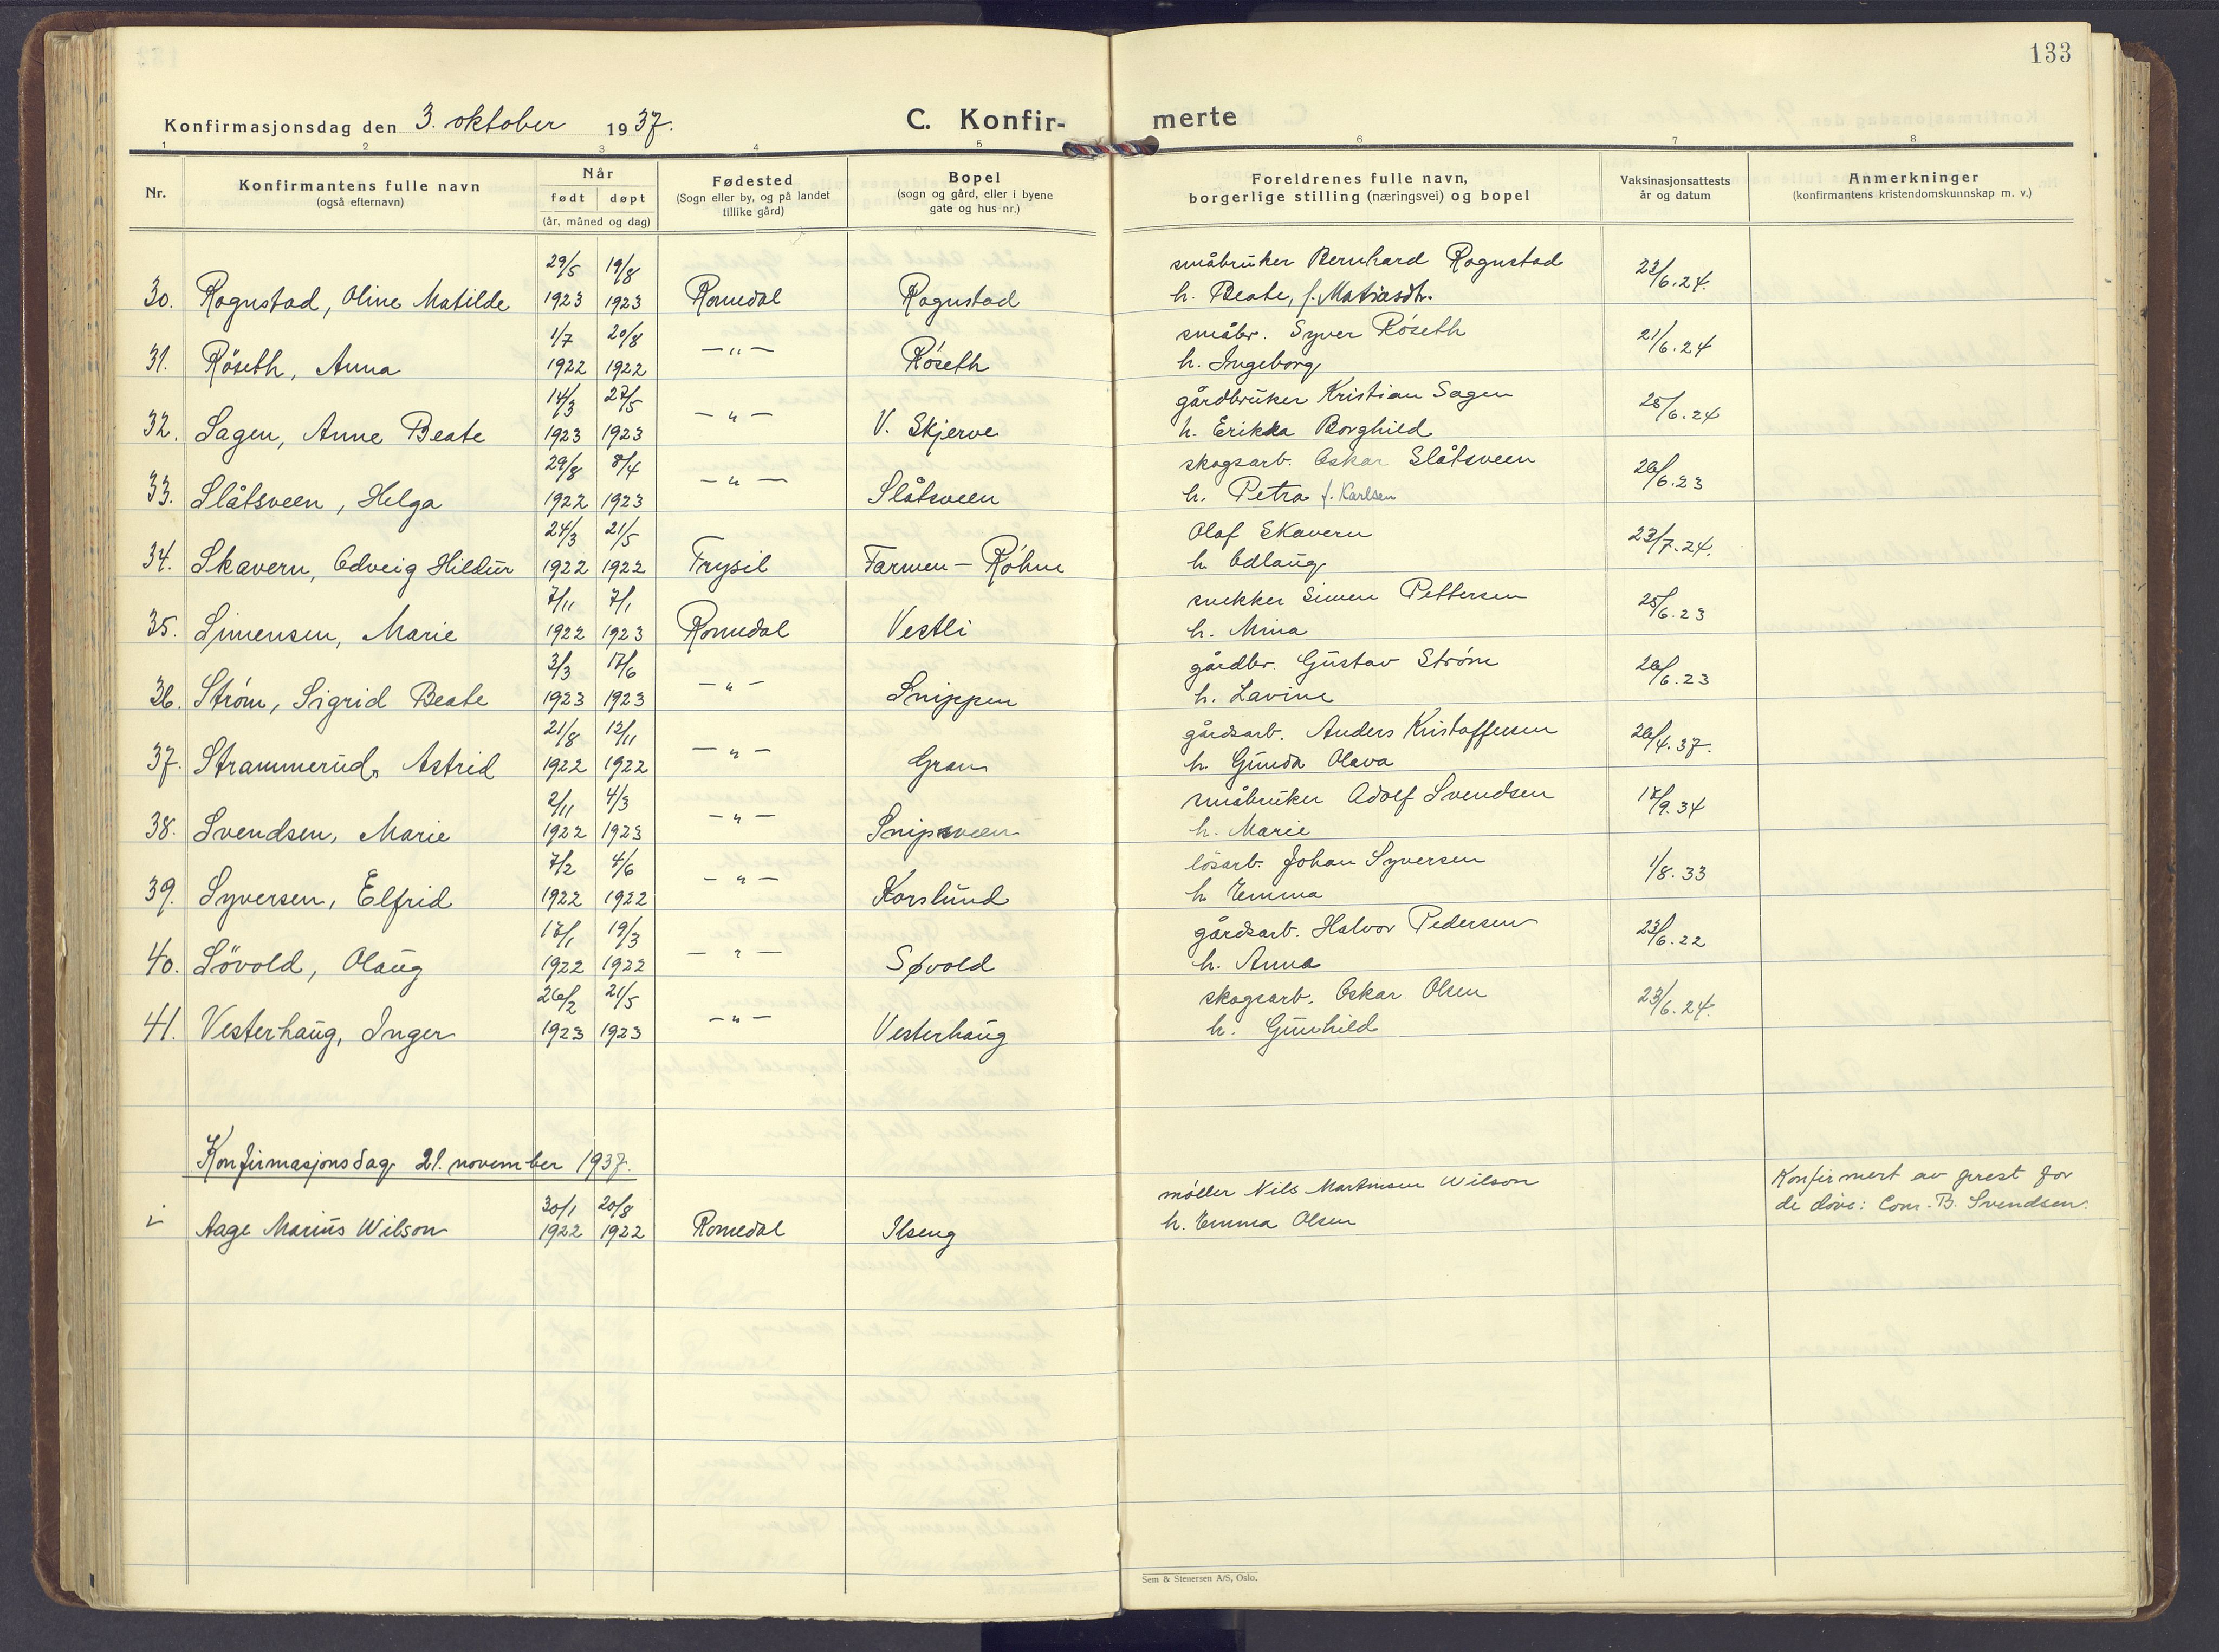 133
Konfirmasjonsdag den 3. oktober 1937.
C. Konfir-
merte
1 2 3 4 5 6 7 8
Nr.
Konfirmantens fulle navn
(også efternavn)
Når
født døpt
(år, måned og dag)
Fødested
(Sogn eller by, og på landet
tillike gård)
Bopel
(sogn og gård, eller i byene
gate og hus nr.)
Foreldrenes fulle navn,
borgerlige stilling (næringsvei) og bopel
Vaksinasjonsattests
år og datum
Anmerkninger
(konfirmantens kristendomskunnskap m. v.)
29/5 19/8 småbruker Bernhard Rognstad 23/6.24.
30. Rognstad, Oline Matilde 1923 1923 Romedal Rognstad h. Beate, f. Matiasdtr.
1/7 20/8 småbr. Syver Røseth 21/6.24
31. Röseth, Anna 1922 1922 —"— Røseth h. Ingeborg
14/3 27/5 gårdbruker Kristian Sagen 25/6.24
32. Sagen, Anne Beate 1923 1923 —"— V. Skjerve h. Erikka Borghild
29/8 8/4 skogsarb. Oskar Slåtsveen 26/6.23
33. Slåtsveen, Helga 1922 1923 —"— Slåtsveen h. Petra f. Karlsen
24/3 21/5 Olaf Skavern 23/7.24.
34. Skavern, Odveig Hildur 1922 1922 Trysil Farmen - Røhne h. Odlaug
7/11 7/1 snekker Simen Pettersen 25/6.23
35. Simensen, Marie 1922 1923 Romedal Vestli h. Mina
3/3 17/6 gårdbr. Gustav Strøm 26/6.23
36. Strøm, Sigrid Beate 1923 1923 —"— Snippen h. Lavine
21/8 12/11 gårdsarb. Anders Kristoffersen 26/4.37.
37. Strammerud, Astrid 1922 1922 —"— Gran h. Gunda Olava
2/11 4/3 småbruker Adolf Svendsen 17/9.34
38. Svendsen, Marie 1922 1923 —"— Snipsveen h. Marie
7/2 4/6 lösarb. Johan Syversen 1/8.33
39. Syversen, Elfrid 1922 1922 —"— Korslund h. Emma
17/1 19/3 gårdsarb. Halvor Pedersen 23/6.22
40. Sövold, Olaug 1922 1922 —"— Søvold h. Anna
26/2 21/5 skogsarb. Oskar Olsen 23/6.24.
41. Vesterhaug, Inger 1923 1923 —"— Vesterhaug h. Gunhild
Konfirmasjonsdag 21. november 1937.
30/1 20/8 møller Nils Martinsen Wilson Konfirmert av prest for
1 Aage Marius Wilson 1922 1922 Romedal Ilseng h. Emma Olsen de døve: Conr. B. Svendsen.
Sem & Stenersen A/S, Oslo.